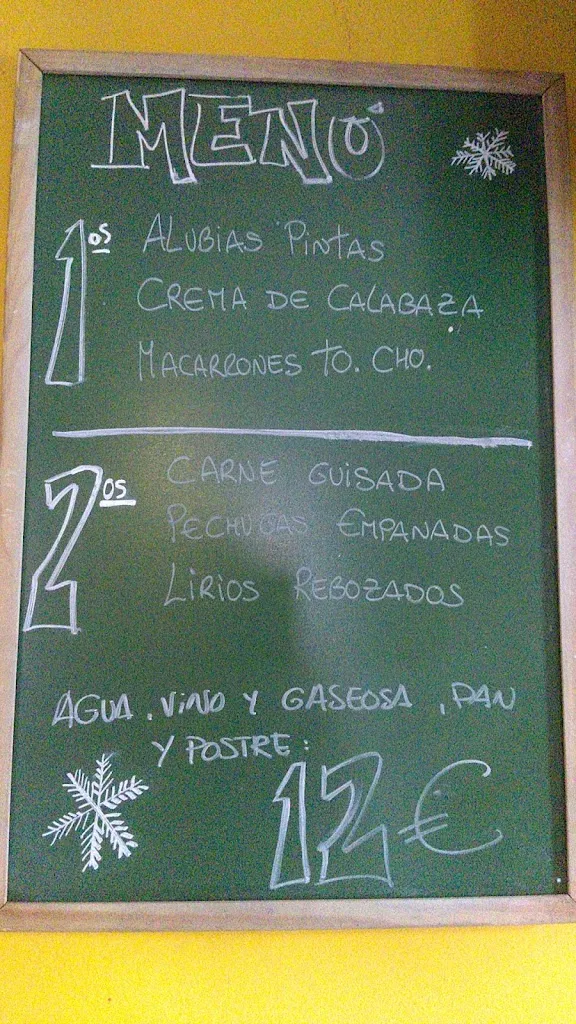 MENÚ
1os
ALUBIAS PINTAS
CREMA DE CALABAZA
MACARRONES TO. CHO.
2os
CARNE GUISADA
PECHUGAS EMPANADAS
LIRIOS REBOZADOS
AGUA, VINO Y GASEOSA, PAN
Y POSTRE:
12€